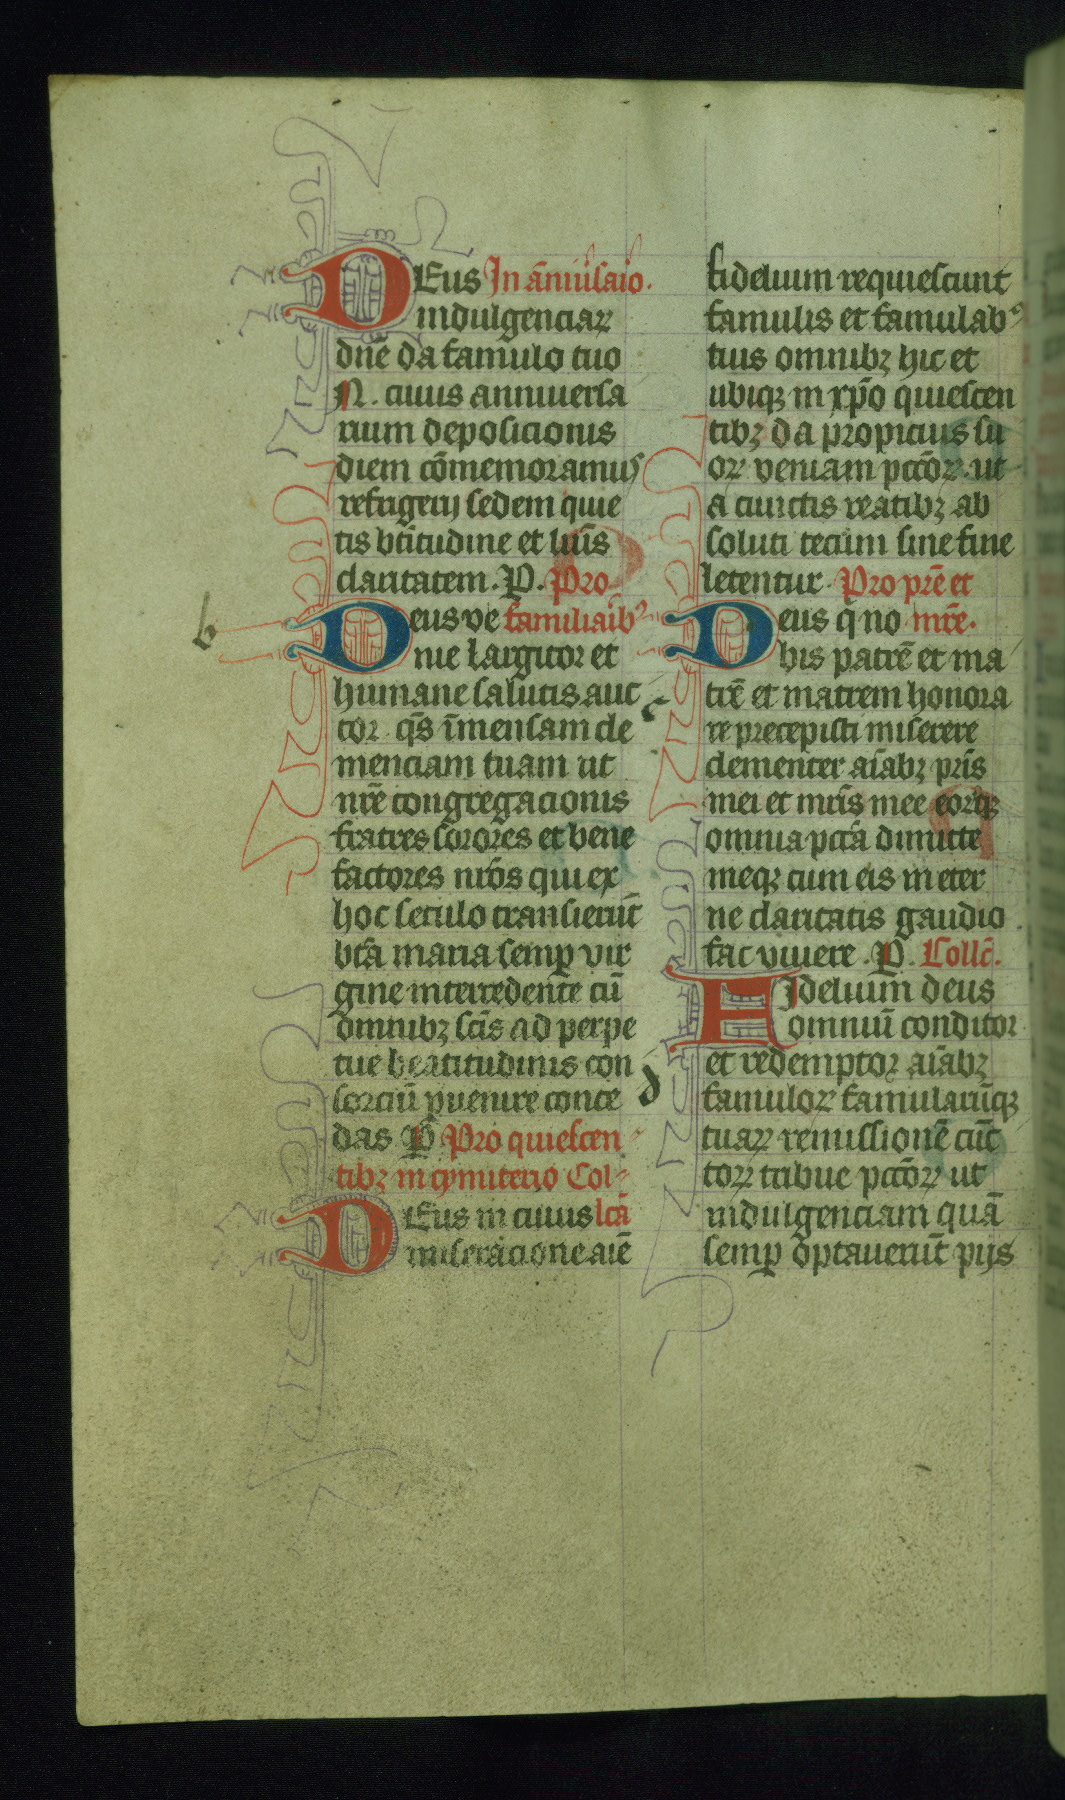 DEus In ãniũsaio.
indulgenciaꝝ
dnẽ da famulo tuo
N. cuius anniuersa
rium deposicionis
diem cõmemoramus
refrigerij sedem quie
tis bt̃itudine et lũis
claritatem. P. Pro
Deus ve familiaib⁹
nie largitor et
humane salutis auc
tor q̃s ĩmensam cle
menciam tuam ut
nr̃e congregacionis
fratres sorores et bene
factores nr̃os qui ex
hoc seculo transierũt
bt̃a maria semꝑ vir
gine intercedente cũ
omnibꝫ sc̃is ad perpe
tue beatitudinis con
sorciũ ꝑuenire conce
das P Pro quiescen
tibꝫ in cymiterio Col
DEus in cuius lcã
miseracione aĩe
b
fidelium requiescunt
famulis et famulab⁹
tuis omnibꝫ hic et
ubiqꝫ in xp̃o quiescen
tibꝫ da propicius su
oꝝ veniam pcc̃oꝝ. ut
a cunctis reatibꝫ ab
soluti tecum sine fine
letentur. Pro pr̃e et
Deus q̃ no mr̃e.
bis patrẽ et ma
c
trẽ et matrem honora
re precepisti miserere
clementer aĩabꝫ pr̃is
mei et mr̃is mee eorũqꝫ
omnia pcc̃a dimitte
meqꝫ cum eis in eter
ne claritatis gaudio
fac viuere. P. Collc̃.
Fidelium deus
omniũ conditor
d
et redemptor aĩabꝫ
famuloꝝ famularũqꝫ
tuaꝝ remissionẽ cũc
toꝝ tribue pcc̃oꝝ ut
indulgenciam quã
semꝑ optauerũt pijs